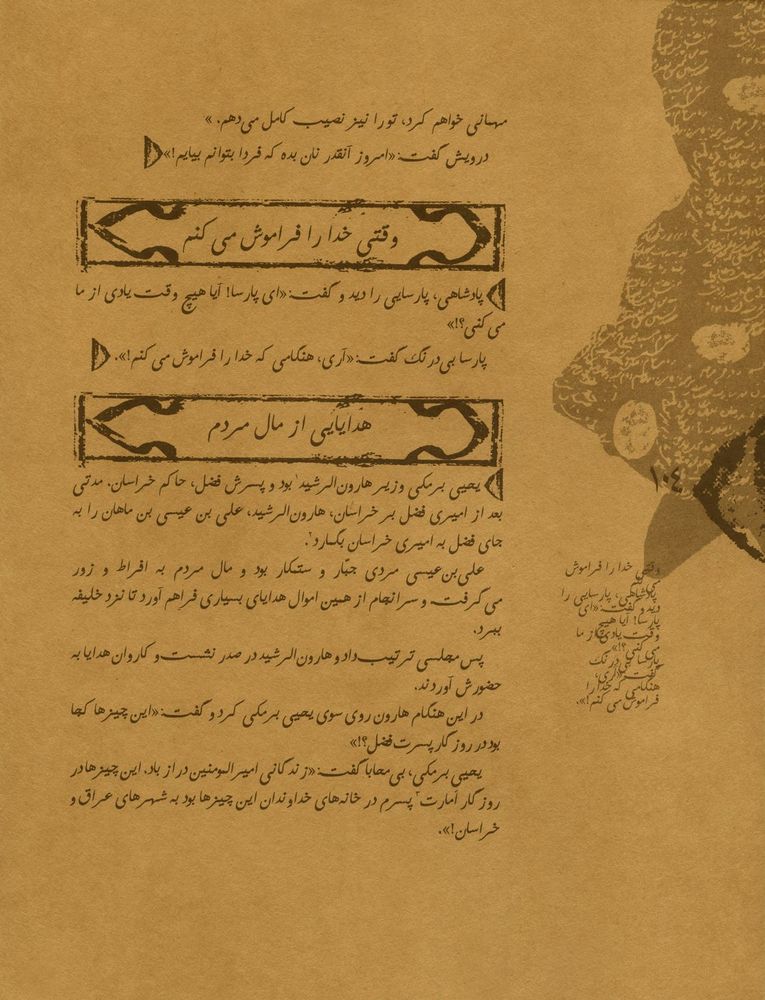 مهمانی خواهم کرد، تو را نیز نصیب کامل می‌دهم. »
درویش گفت: «امروز آنقدر نان بده که فردا بتوانم بیایم!»
وقتی خدا را فراموش می کنم
پادشاهی، پارسایی را دید و گفت: «ای پارسا! آیا هیچ وقت یادی از ما
می کنی؟!»
پارسا بی‌درنگ گفت: «آری، هنگامی که خدا را فراموش می کنم!».
هدایایی از مال مردم
یحیی برمکی وزیر هارون‌الرشید۱ بود و پسرش فضل، حاکم خراسان. مدتی
بعد از امیری فضل بر خراسان، هارون‌الرشید، علی بن عیسی بن ماهان را به
جای فضل به امیری خراسان بگمارد۲.
علی‌بن‌عیسی مردی جبّار و ستمکار بود و مال مردم به افراط و زور
می گرفت و سرانجام از همین اموال هدایای بسیاری فراهم آورد تا نزد خلیفه
ببرد.
پس مجلسی ترتیب داد و هارون‌الرشید در صدر نشست و کاروان هدایا به
حضورش آوردند.
در این هنگام هارون روی سوی یحیی برمکی کرد و گفت: «این چیزها کجا
بود در روزگار پسرت فضل؟!»
یحیی برمکی، بی‌محابا گفت: «زندگانی امیرالمومنین دراز باد. این چیزها در
روزگار اَمارت۳ پسرم در خانه‌های خداوندان این چیزها بود به شهرهای عراق و
خراسان!».
۱۰۴
وقتی خدا را فراموش
می کنم
پادشاهی، پارسایی را
دید و گفت: «ای
پارسا! آیا هیچ
وقت یادی از ما
می کنی؟!»
پارسا بی‌درنگ
گفت: «آری،
هنگامی که خدا را
فراموش می کنم!».